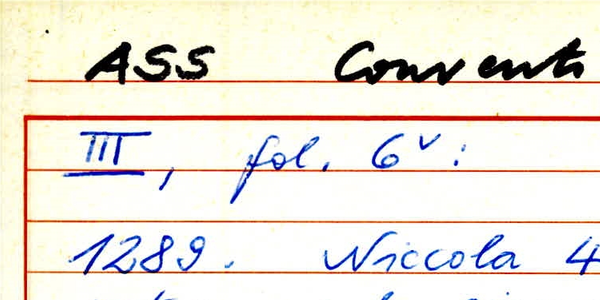 ASS Conventi
III, fol. 6v:
1289. Niccola 4